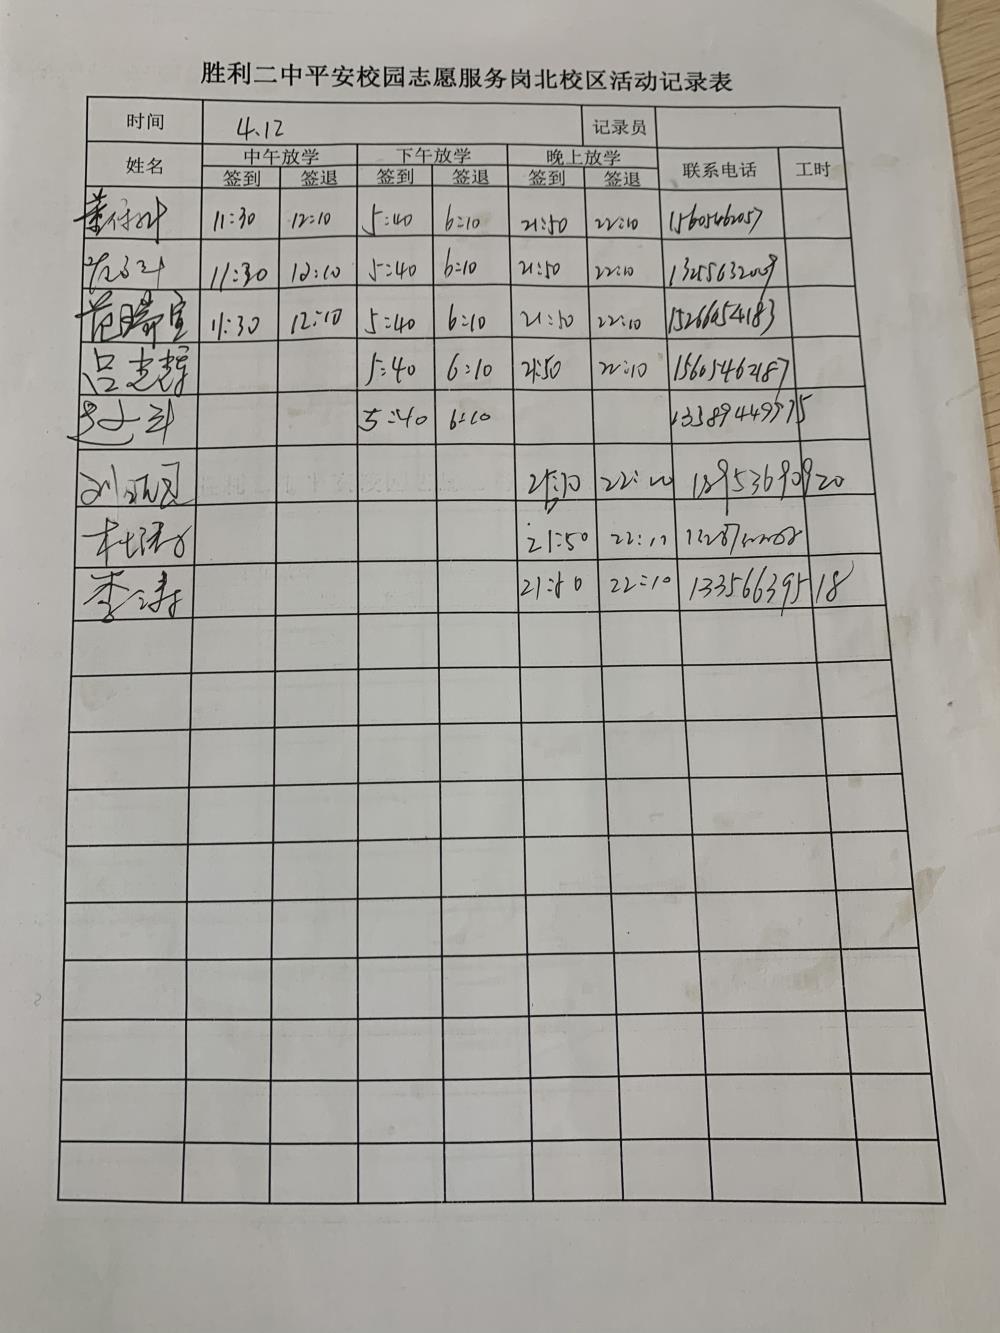 胜利二中平安校园志愿服务岗北校区活动记录表
时间 4.12 记录员
姓名 中午放学 下午放学 晚上放学 联系电话 工时
签到 签退 签到 签退 签到 签退
11:30 12:10 5:40 6:10 21:50 22:10 15605462057
11:30 12:10 5:40 6:10 21:50 22:10 13255632009
范瑞宣 11:30 12:10 5:40 6:10 21:50 22:10 15266054183
吕志辉 5:40 6:10 21:50 22:10 15605462187
5:40 6:10 13389449775
21:50 22:10 18953690920
杜 21:50 22:10
李涛 21:50 22:10 13356639518